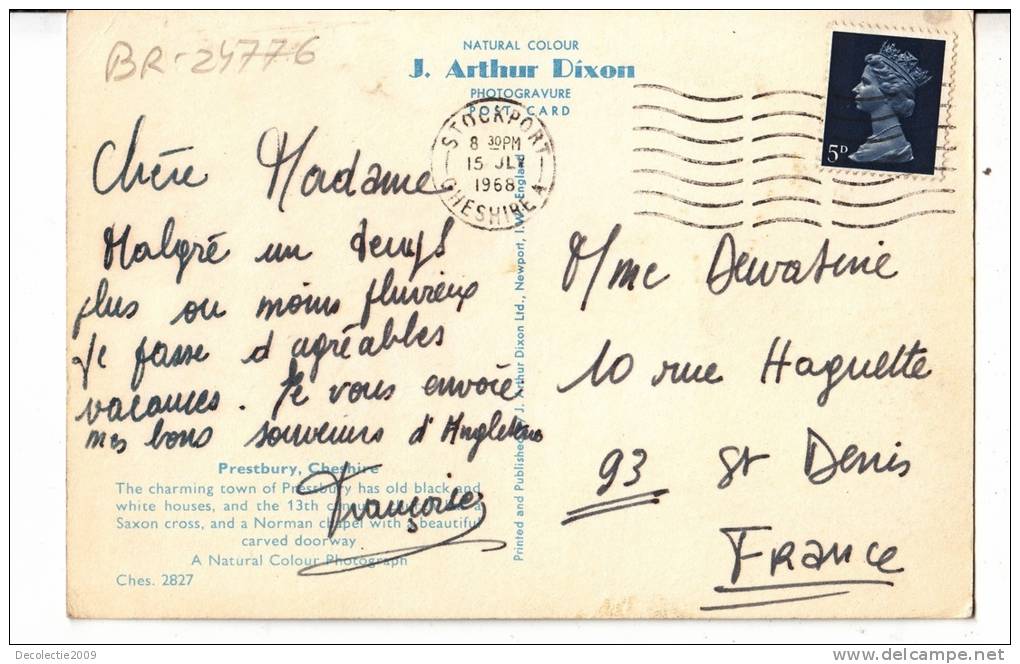 BR-24776
NATURAL COLOUR
J. Arthur Dixon
PHOTOGRAVURE
POST CARD
STOCKPORT
8 30PM
15 JLY
1968
CHESHIRE A
5D
Chère Madame
Malgré un temps
plus ou moins pluvieux
je passe d'agréables
vacances. Je vous envoie
mes bons souvenirs d'Angleterre
Françoise
Prestbury, Cheshire
The charming town of Prestbury has old black and
white houses, and the 13th
Saxon cross, and a Norman chapel with a beautiful
carved doorway
A Natural Colour Photograph
Ches. 2827
Printed and Published by J. Arthur Dixon Ltd., Newport, I.W., England
Mme Dewatine
10 rue Haguette
93 St Denis
France
Decolectie2009
www.delcampe.net